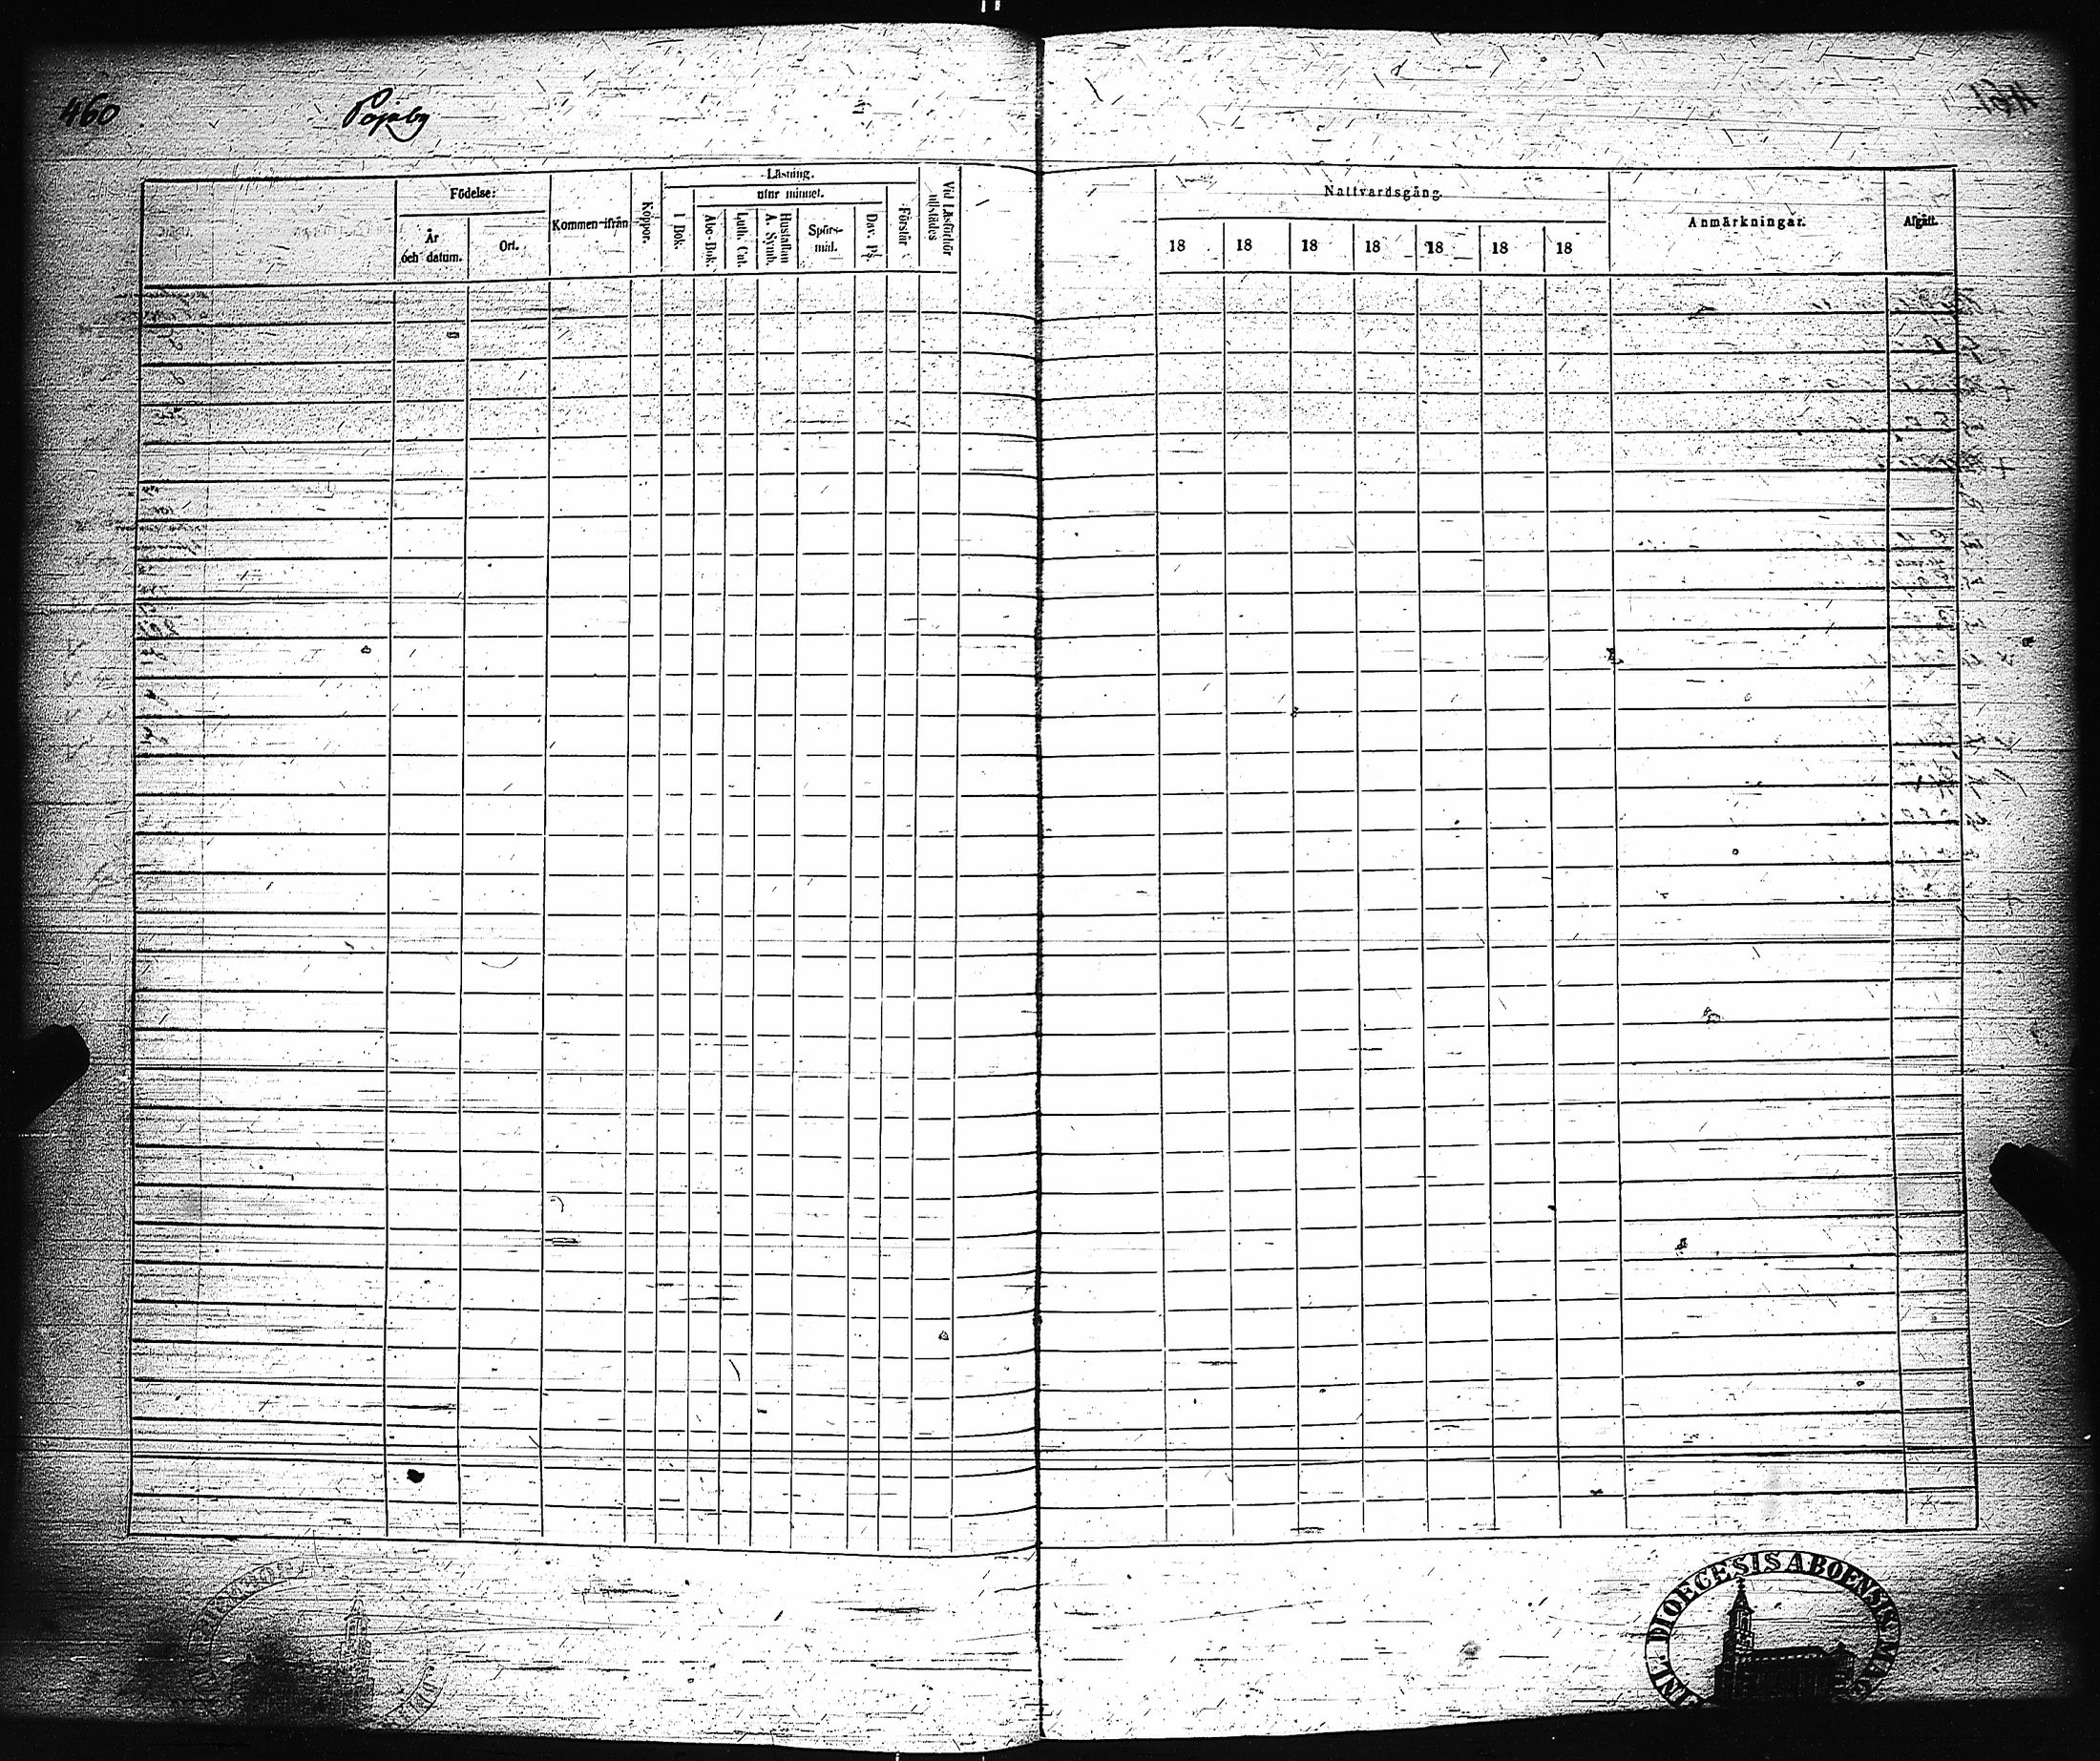 460
Pojaby
Födelse:
År
och datum.
Ort.
Kommen ifrån
Koppor.
Läsning.
I Bok.
utur minnet.
Abc-Bok.
Luth. Cat.
Hustaflan
A. Symb.
Spörs-
mål.
Dav. Ps.
Förstår
Vid Läsförhör
tillstädes
Nattvardsgång.
18 18 18 18 18 18 18
Anmärkningar.
Afgått.
DIOECESIS ABOENSIS